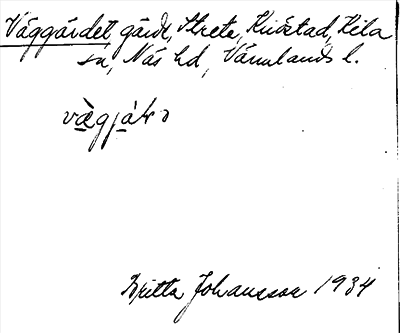 Väggärdet gärde, Strete, Knöstad, Kila
sn, Näs hd, Värmlands l.
Britta Johansson 1934